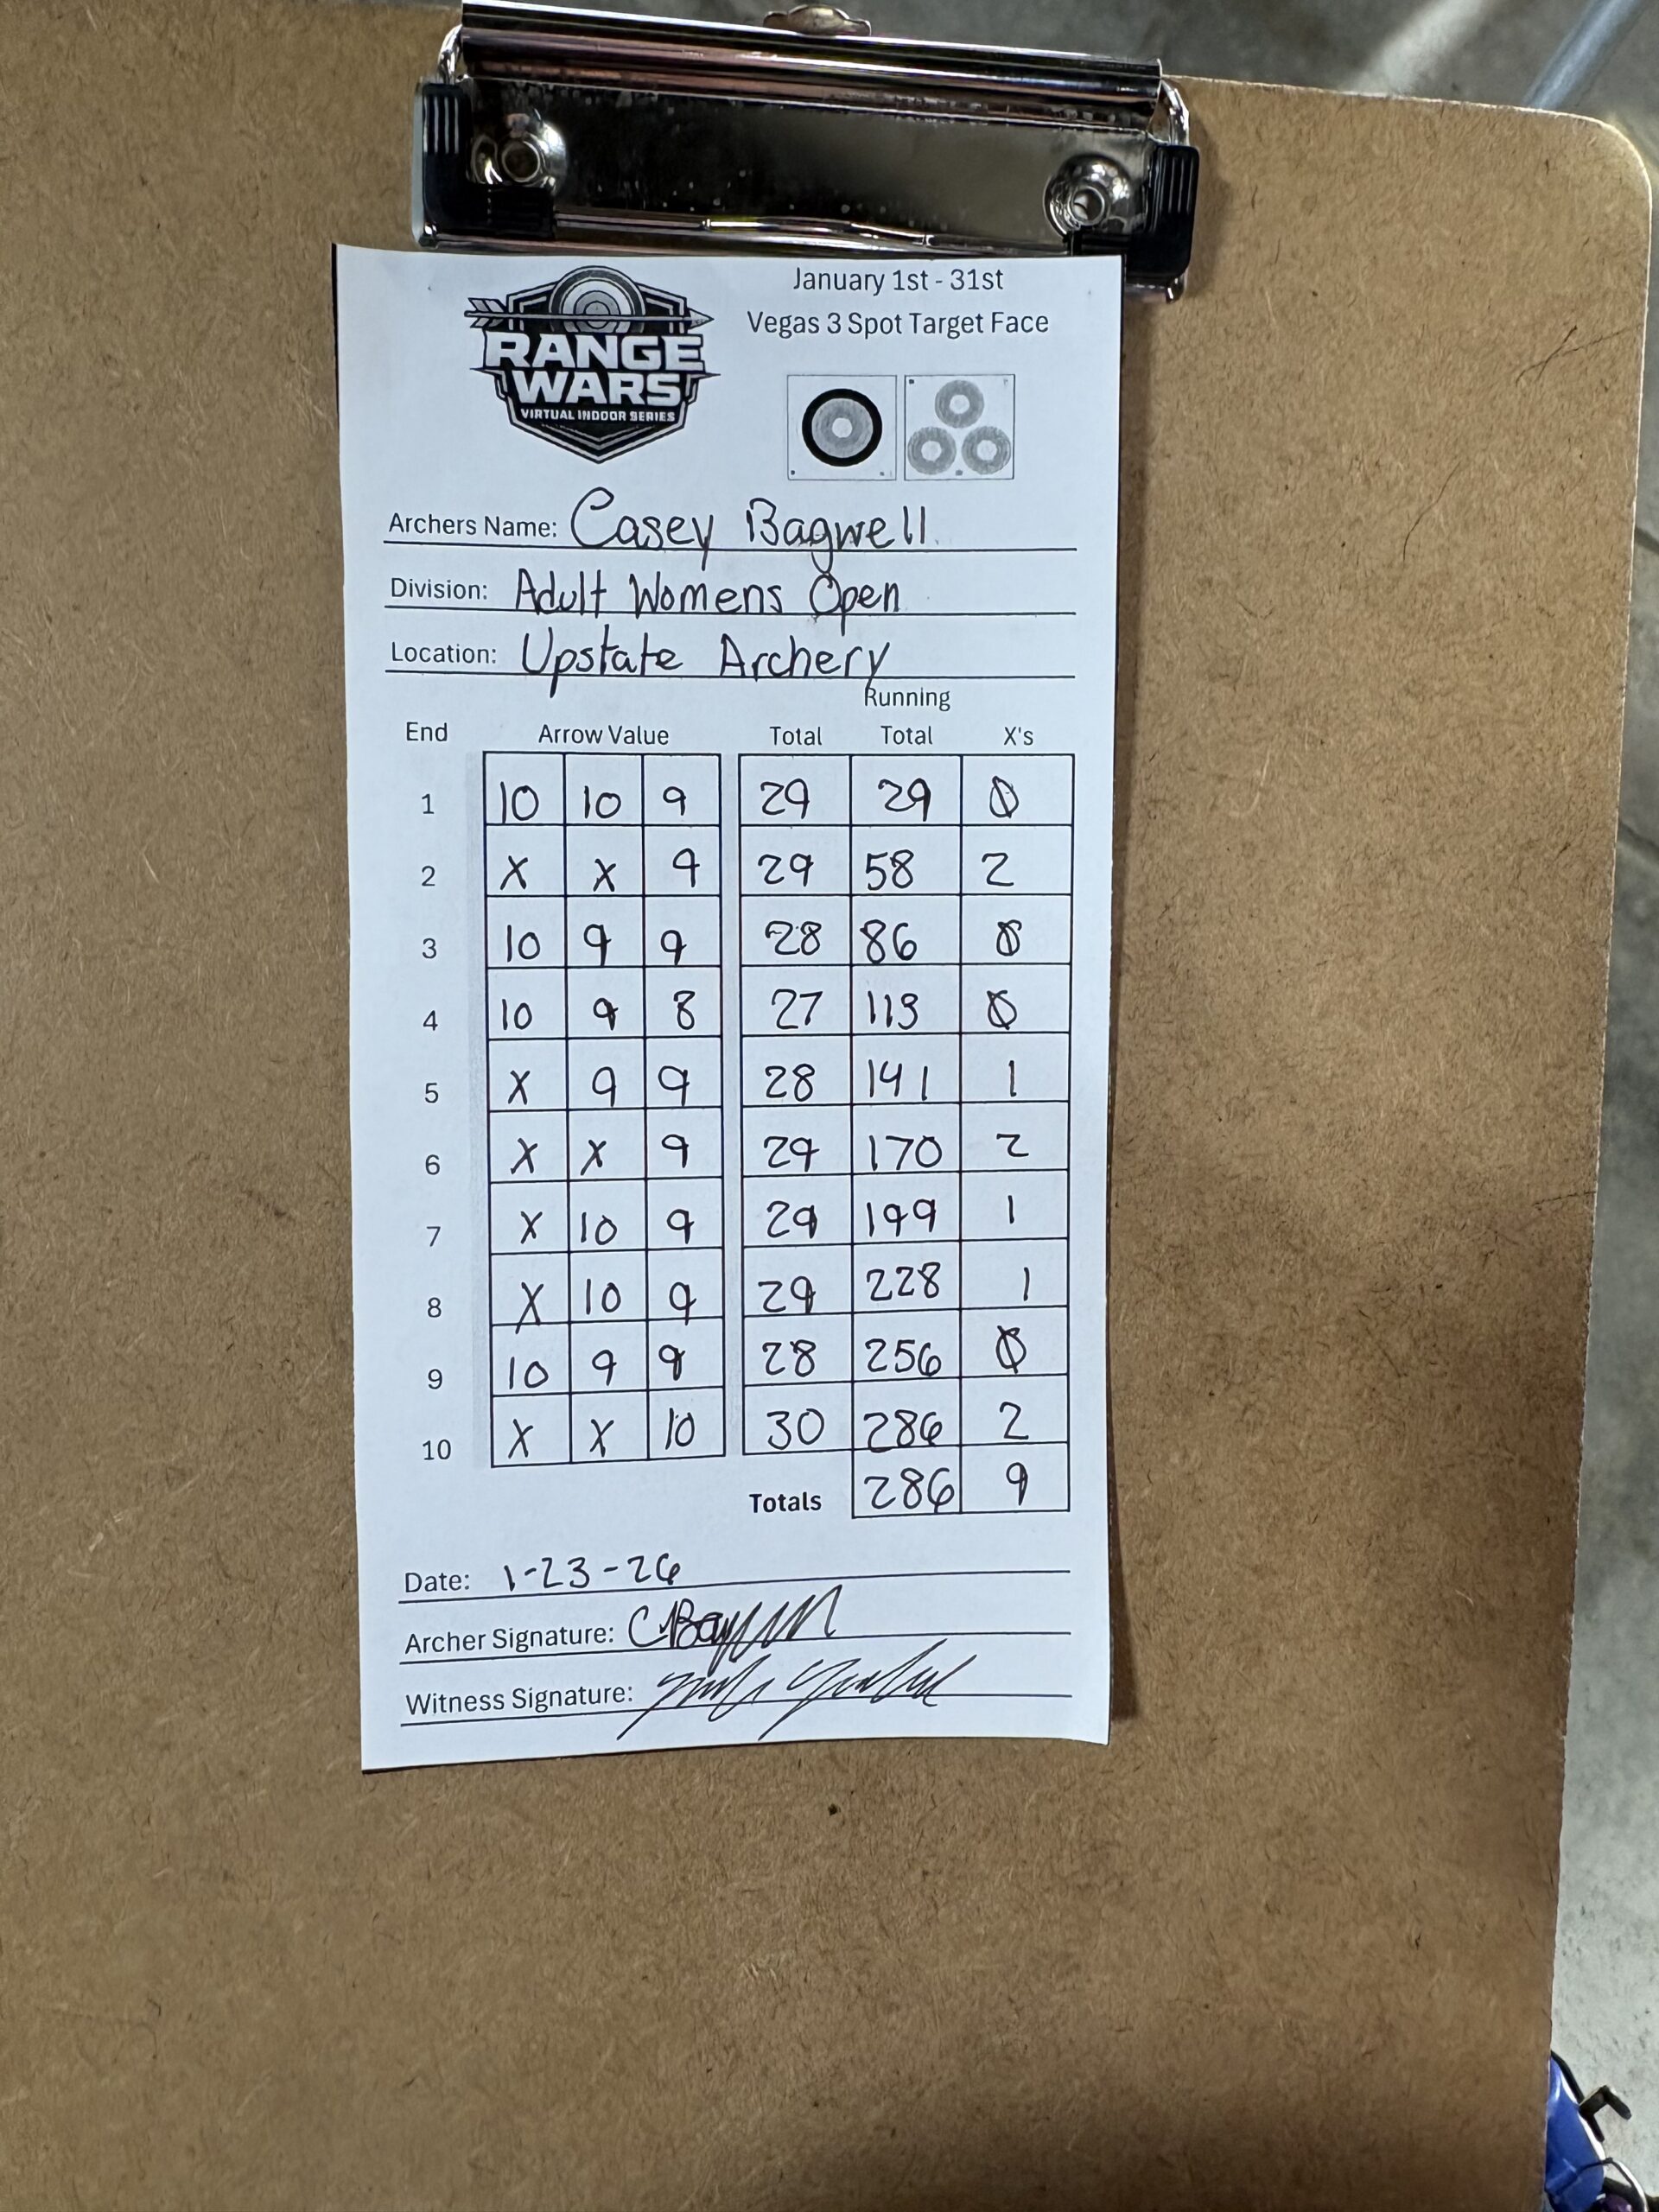 January 1st - 31st
Vegas 3 Spot Target Face
RANGE
WARS
VIRTUAL INDOOR SERIES
Archers Name: Casey Bagwell
Division: Adult Womens Open
Location: Upstate Archery
Running
End Arrow Value Total Total X's
1 10 10 9 29 29 0
2 X X 9 29 58 2
3 10 9 9 28 86 0
4 10 9 8 27 113 0
5 X 9 9 28 141 1
6 X X 9 29 170 2
7 X 10 9 29 199 1
8 X 10 9 29 228 1
9 10 9 9 28 256 0
10 X X 10 30 286 2
Totals 286 9
Date: 1-23-26
Archer Signature:
Witness Signature: